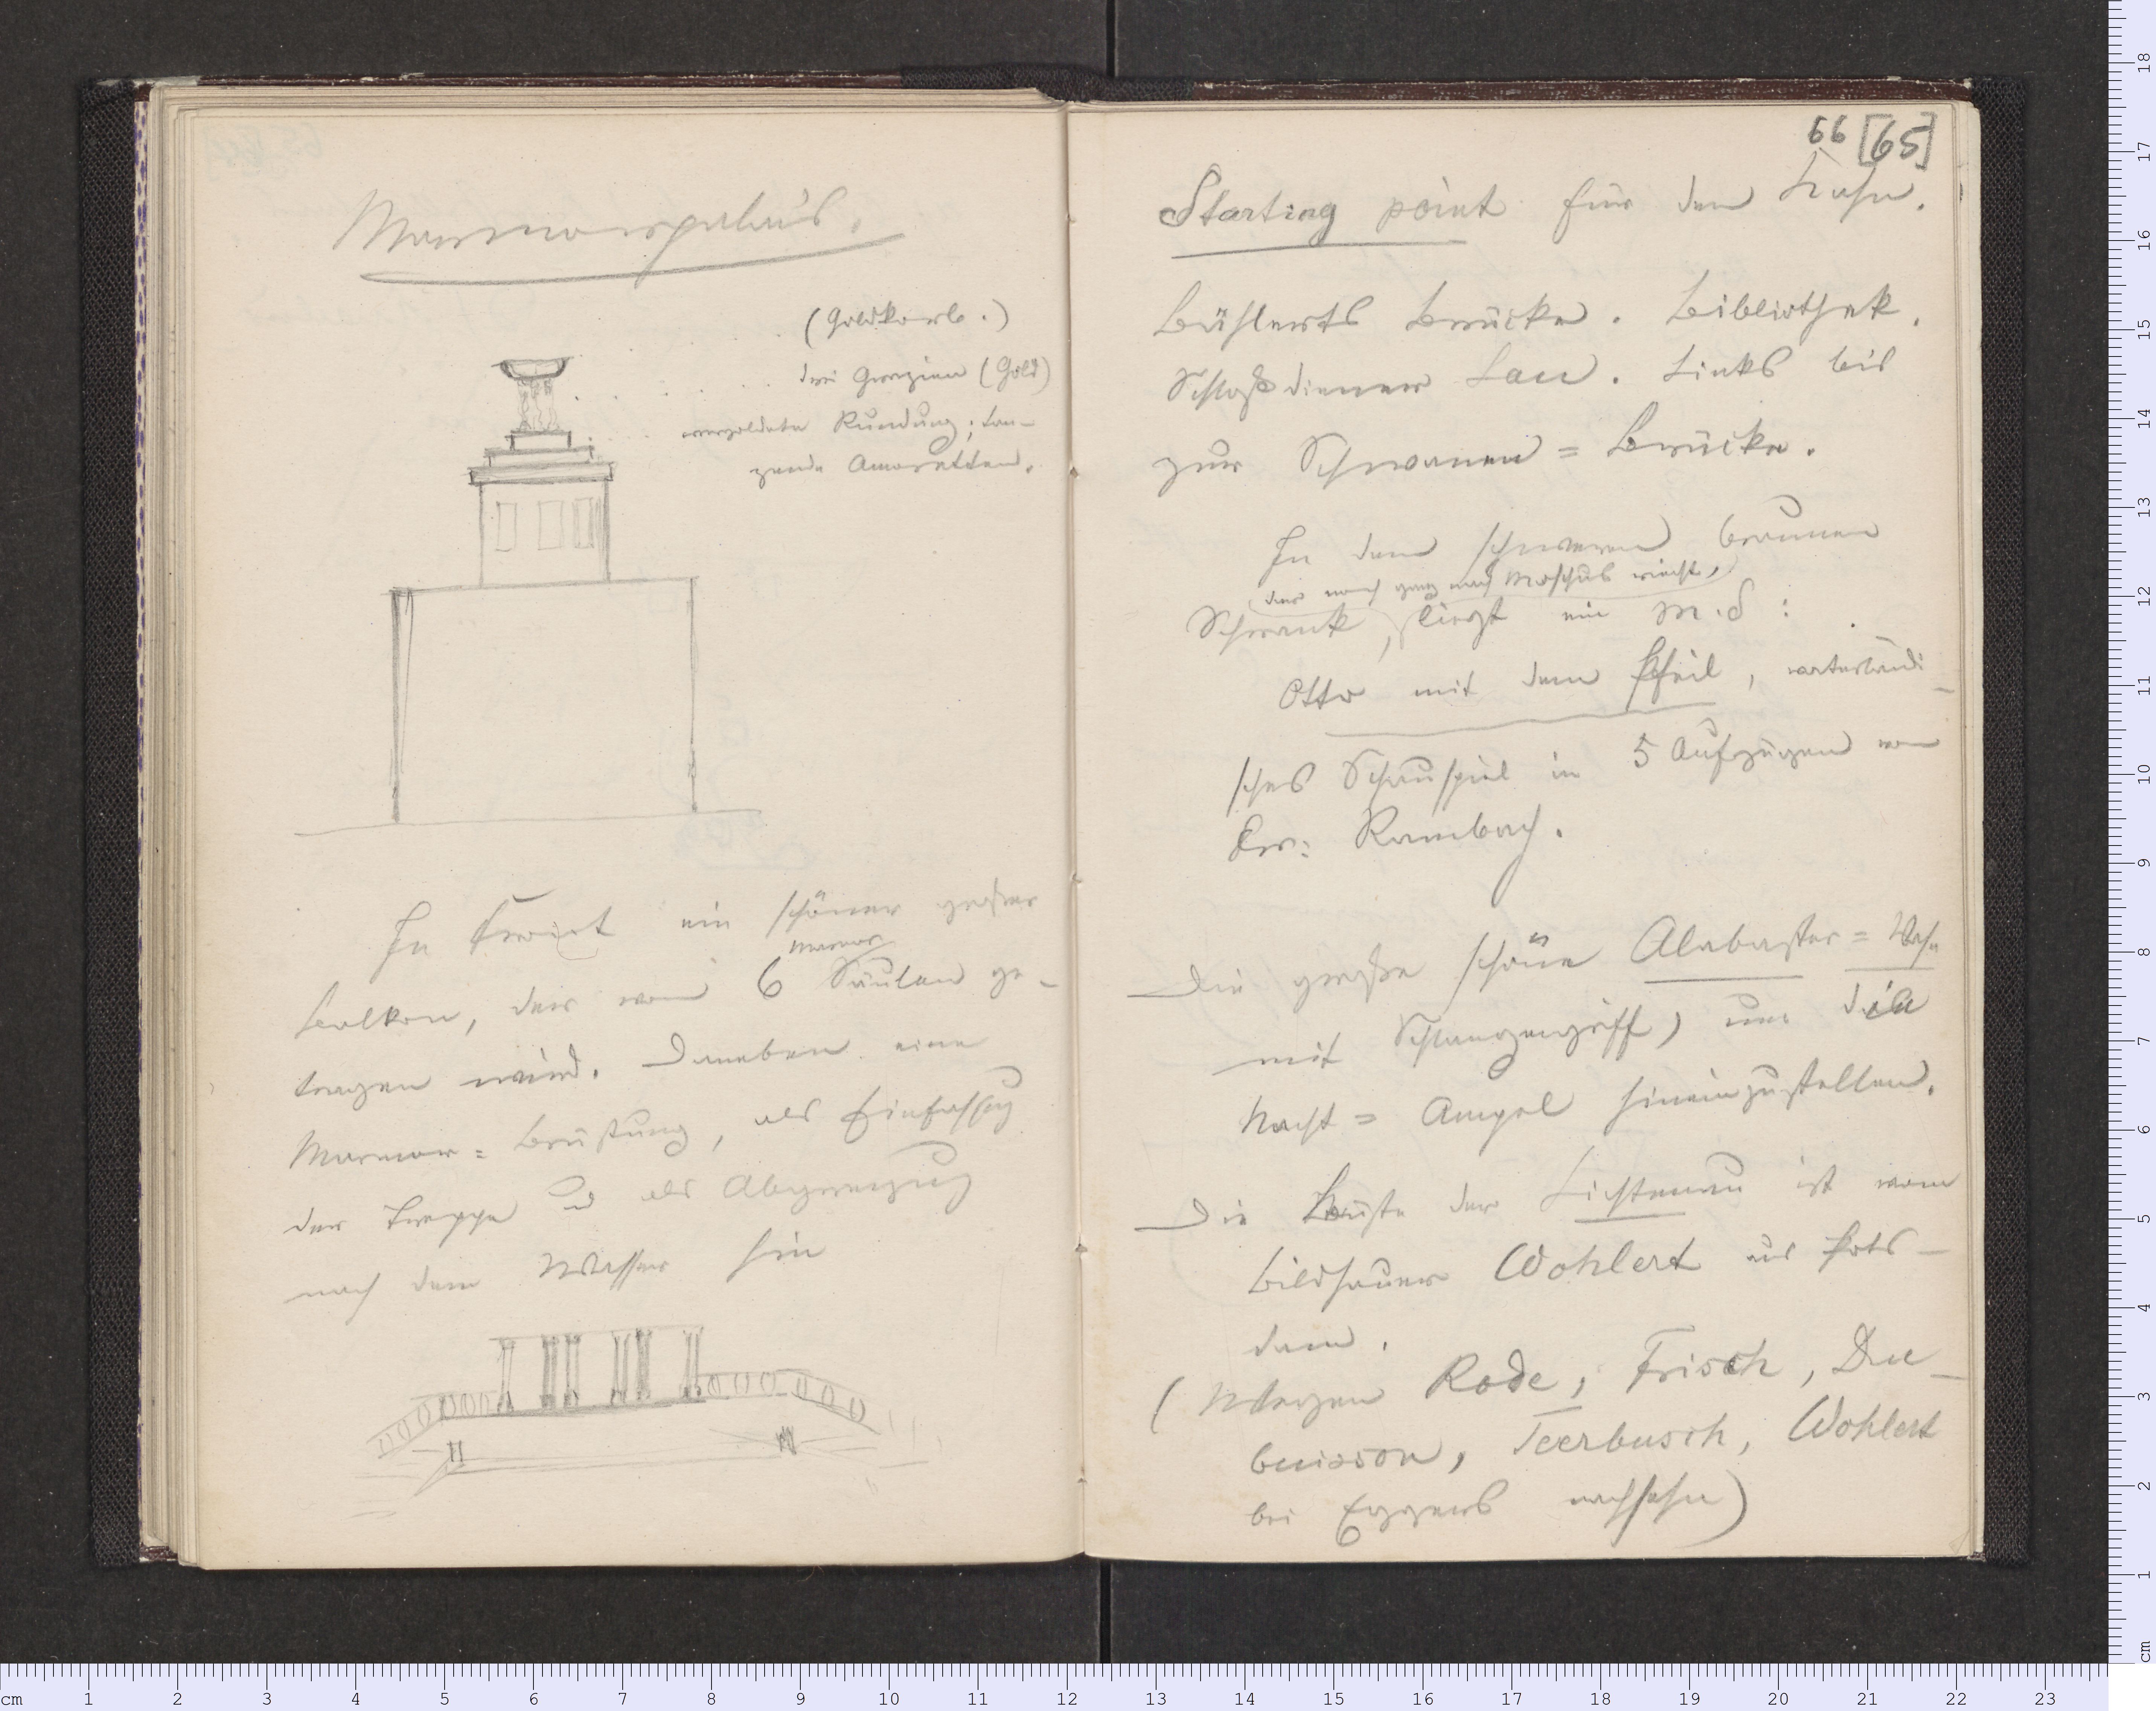 Marmorpalais.
(Goldkorb.)
drei Grazien (Gold)
vergoldete Rundung; tan-
zende Amoretten.
In Front ein schöner großer
Marmor
Balkon, der von 6 Säulen ge-
tragen wird. Daneben eine
Marmor=Brüstung, als Einfassung
der Treppe u als Abgrenzung
nach dem Wasser hin
66 [65]
Starting point für den Kahn.
Bählerts Brücke. Bibliothek.
Schloßdiener Lau. Links bis
zur Schwanen=Brücke.
In dem schweren braunen
der noch ganz nach Moschus riecht,
Schrank, liegt ein M.S:
Otto mit dem Pfeil, vaterländi-
sches Schauspiel in 5 Aufzügen von
Er: Rambach.
Die große schöne Alabaster=Vase
mit Schlangengriff, um die
Nacht=Ampel hineinzustellen.
Die Büste der Lichtenau ist vom
Bildhauer Wohlert aus Pots-
dam.
(Wegen Rode, Frisch, Du-
buisson, Teerbusch, Wohlert
bei Eggers nachsehn)